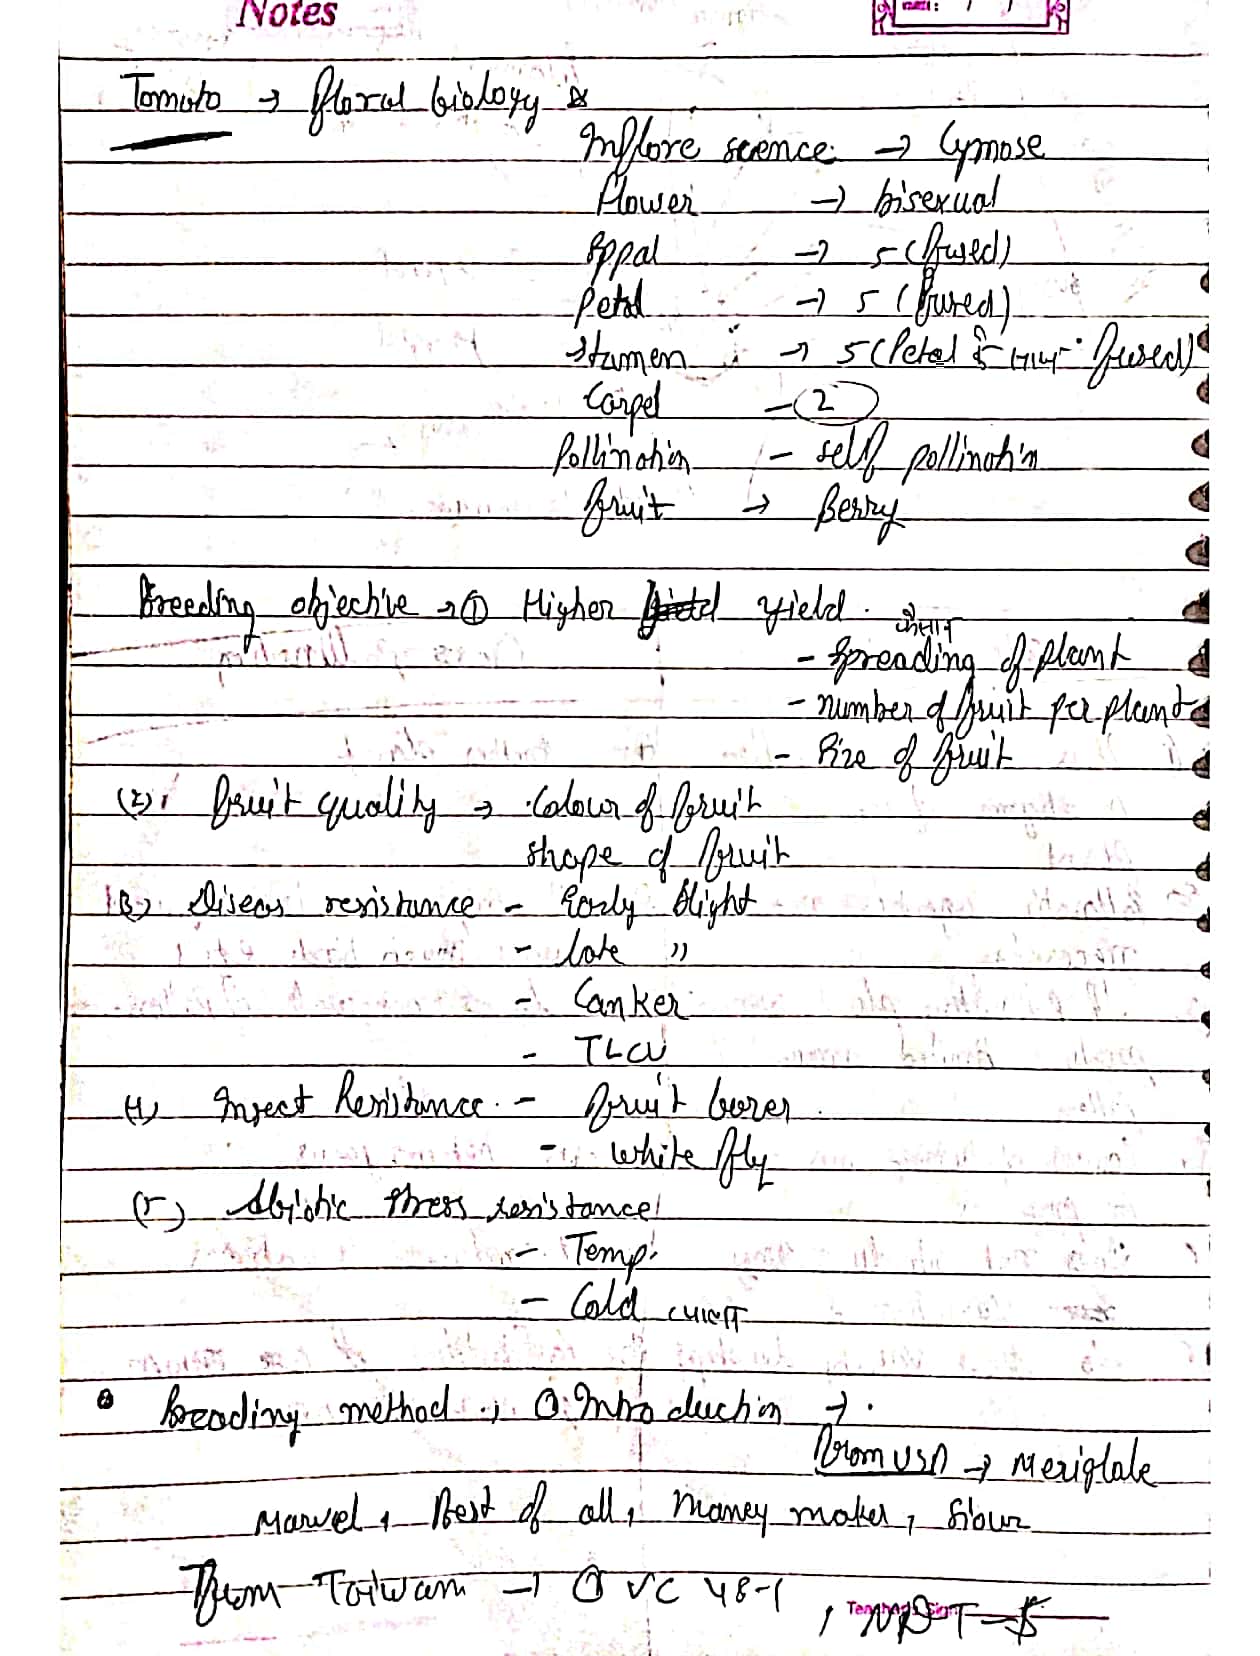 Notes
Tomato → floral biology
Inflore scence → Cymose
flower → bisexual
Sepal → 5 (fused)
Petal → 5 (fused)
Stamen → 5 (Petal के साथ fused)
Carpel - 2
Pollination - self pollination
fruit → Berry
Breeding objective → ① Higher yield
फैलाव
- Spreading of plant
- number of fruit per plant
- Size of fruit
(2) fruit quality → Colour of fruit
shape of fruit
(3) Diseas resistance - Early Blight
- late "
- Canker
- TLCV
(4) Insect Resistance - fruit borer
- white fly
(5) Abiotic stress resistance
- Temp.
- Cold
Breeding method ① Introduction →
from USA → Meriglate
Marvel, Best of all, Money maker, Sioux
From Taiwam → ① VC 48-1
, NDT-5
Teacher's Sign